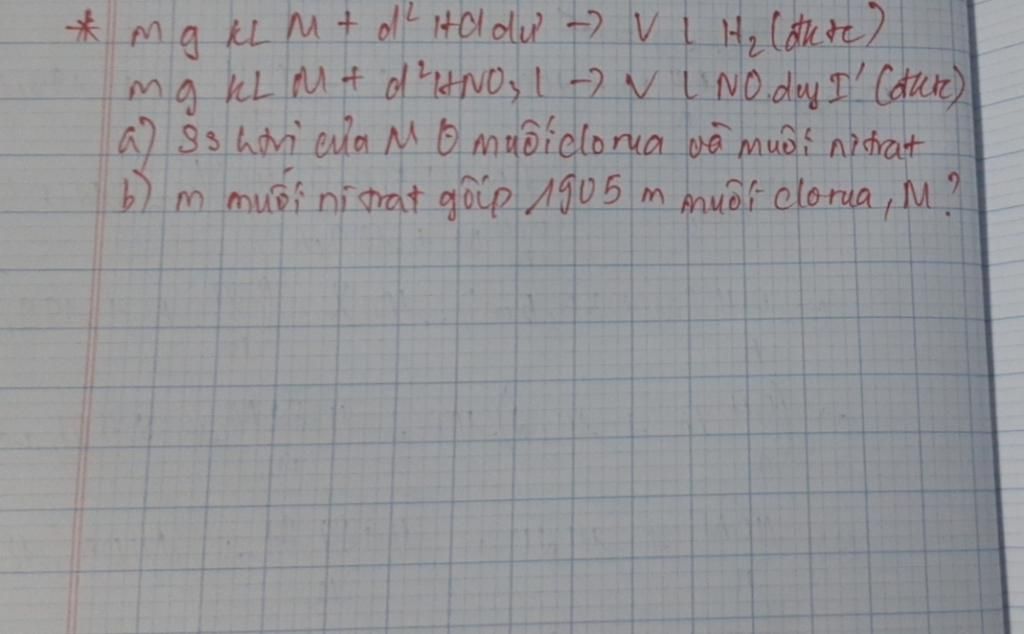 * m g kL M + d² HCl dư → V l H₂ (đktc)
m g kL M + d² HNO₃ l → V l NO duy I' (đktc)
a) Ss htrị của M ở muối clorua và muối nitrat
b) m muối nitrat gấp 1,905 m muối clorua, M?